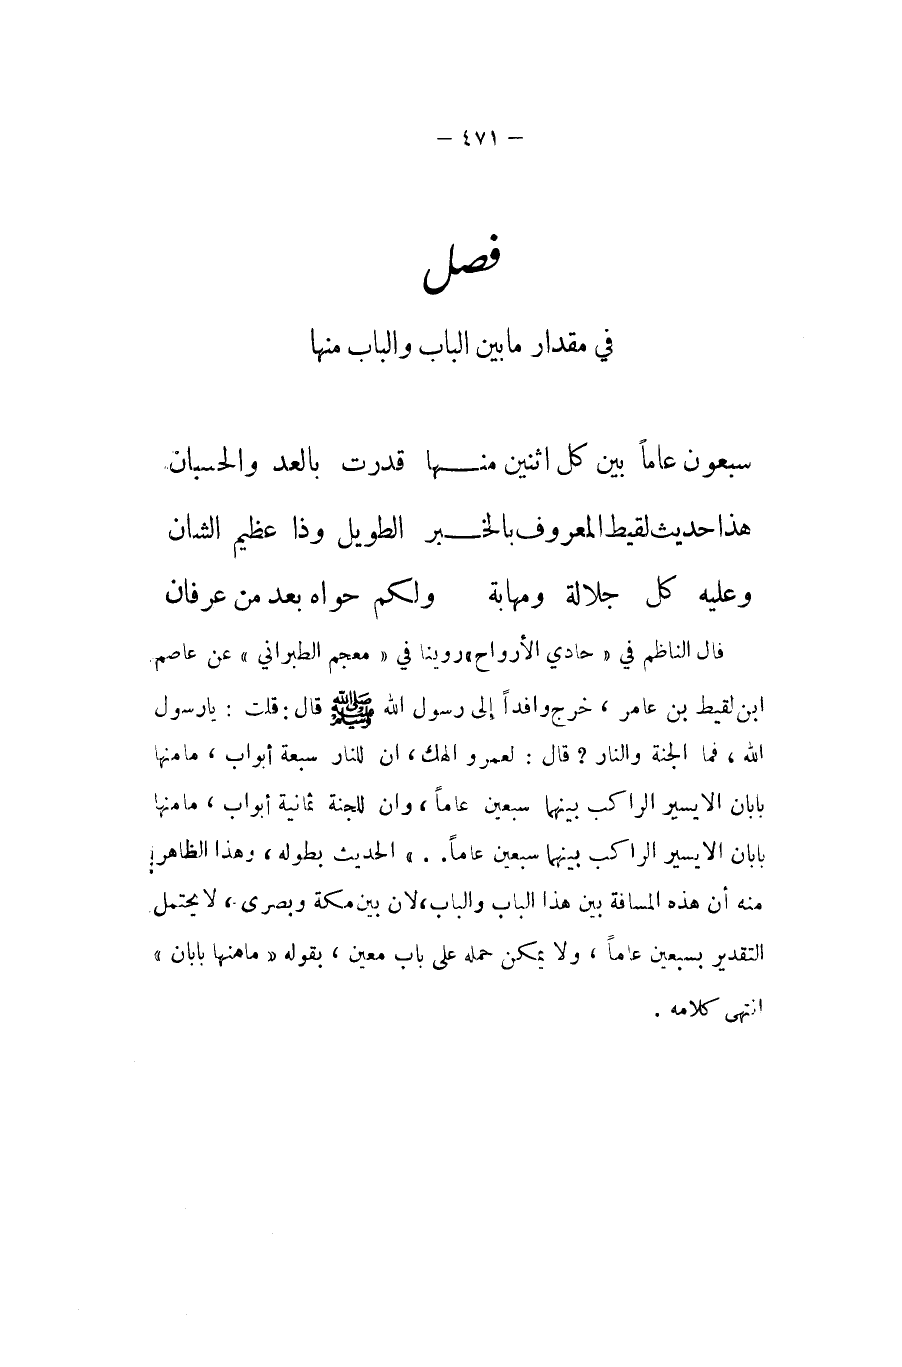 – ٤٧١ –
فصل
في مقدار مابين الباب والباب منها
سبعون عاماً بين كل اثنين منها قدرت بالعد والحسبان
هذا حديث لقيط المعروف بالخبر الطويل وذا عظيم الشان
وعليه كل جلالة ومهابة ولكم حواه بعد من عرفان
قال الناظم في « حادي الأرواح » روينا في « معجم الطبراني » عن عاصم
ابن لقيط بن عامر ، خرج وافداً إلى رسول الله ﷺ قال : قلت : يارسول
الله ، فما الجنة والنار ? قال : لعمرو الهك ، ان للنار سبعة أبواب ، مامنها
بابان الا يسير الراكب بينها سبعين عاماً ، وان للجنة ثمانية أبواب ، مامنها
بابان الا يسير الراكب بينها سبعين عاماً . . » الحديث بطوله ، وهذا الظاهر
منه أن هذه المسافة بين هذا الباب والباب ، لان بين مكة وبصرى ، لا يحتمل
التقدير بسبعين عاماً ، ولا يمكن حمله على باب معين ، بقوله « مامنها بابان »
انتهى كلامه .